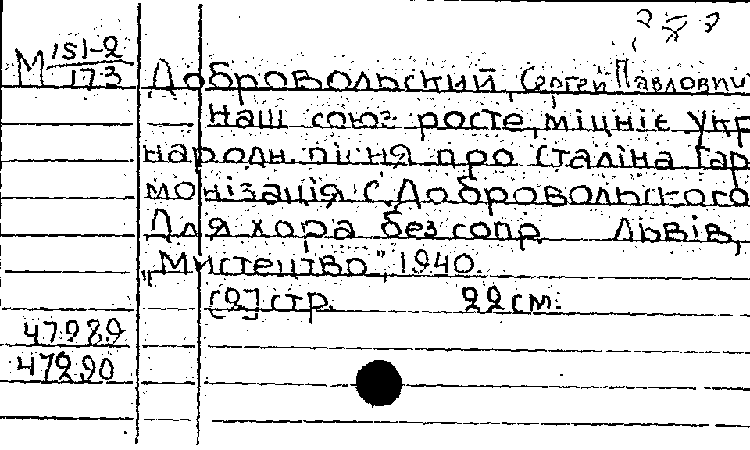 М 151-2
173
Добровольский, Сергей Павлович
Наш союз росте, міцніє Укр
народн. пісня про Сталіна Гар
монізація С. Добровольского
Для хора без сопр. Львів,
„Мистецтво", 1940.
[2] стр. 22 см.
47289
47290